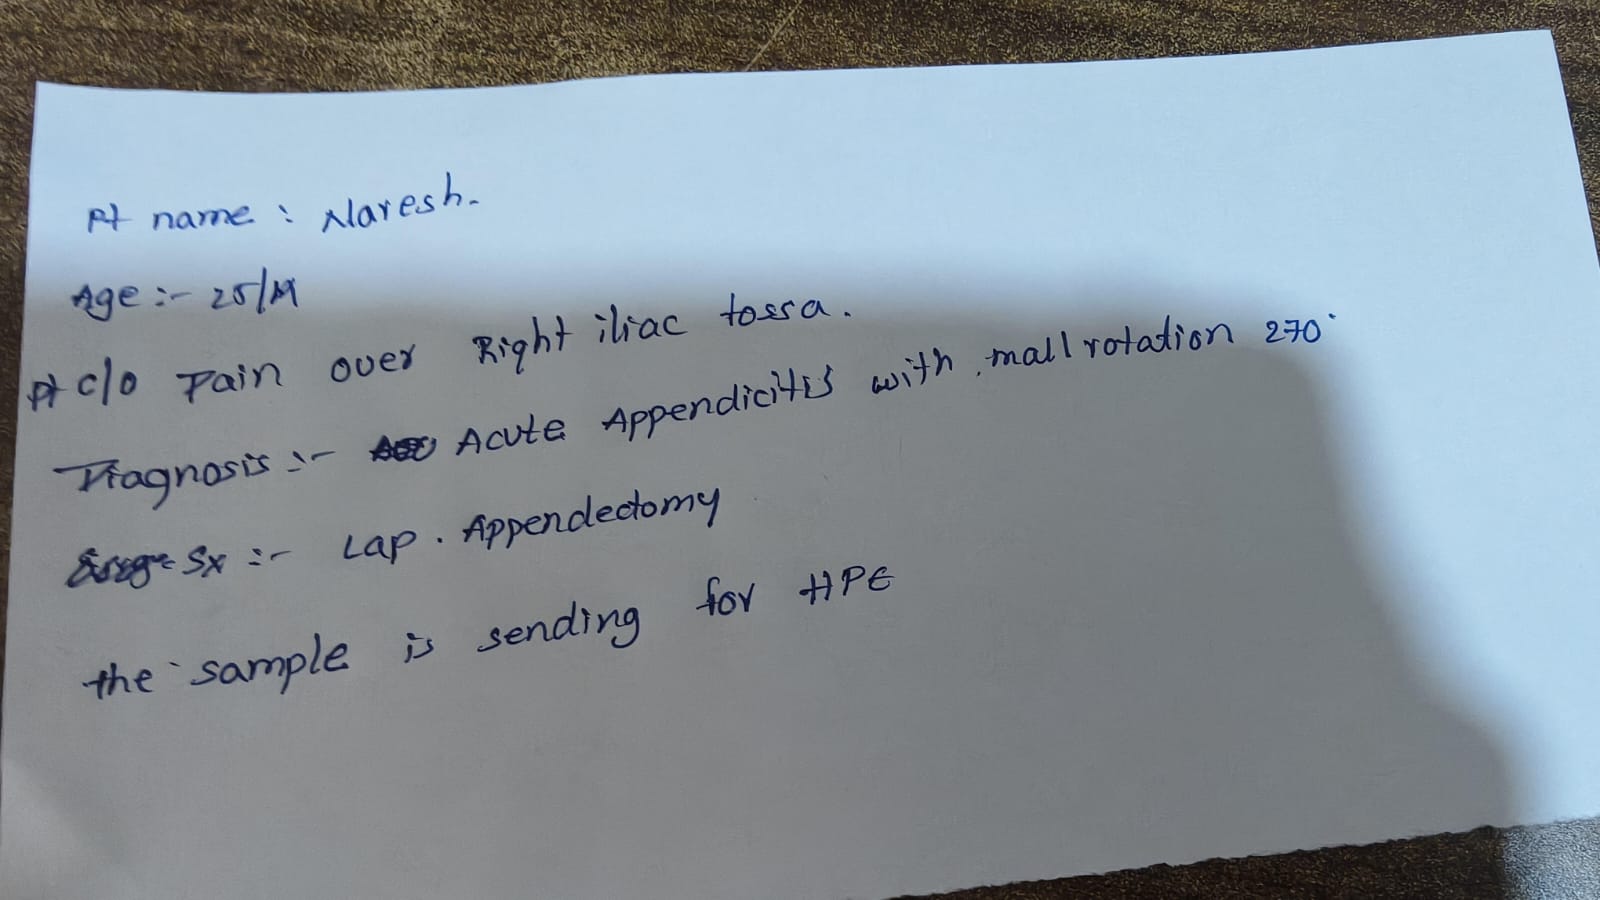 Pt name : Naresh.
Age :- 25/M
Pt c/o Pain over Right iliac fossa.
Diagnosis :- Acute Appendicitis with mall rotation 270°
Sx :- Lap. Appendectomy
the sample is sending for HPE